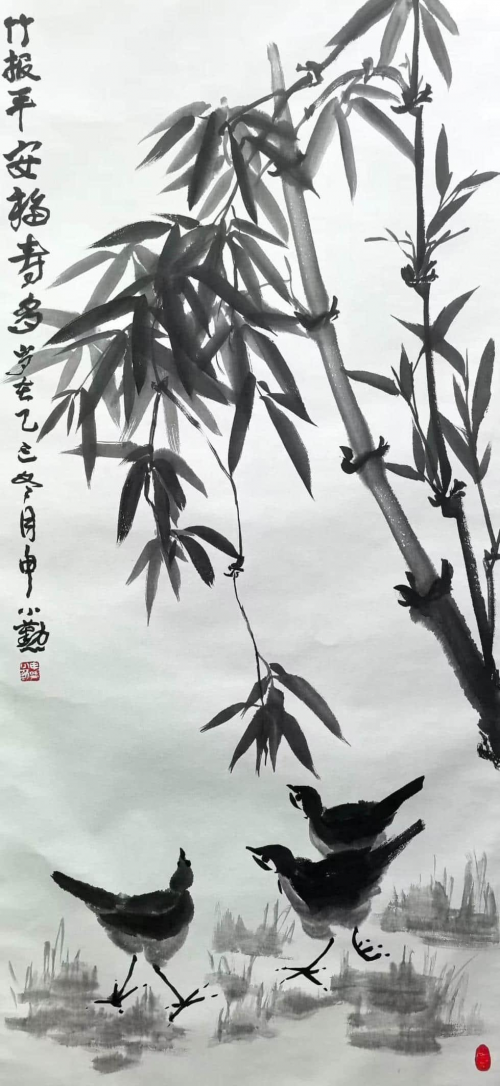 竹报平安福寿多 岁在乙巳冬月申小勤